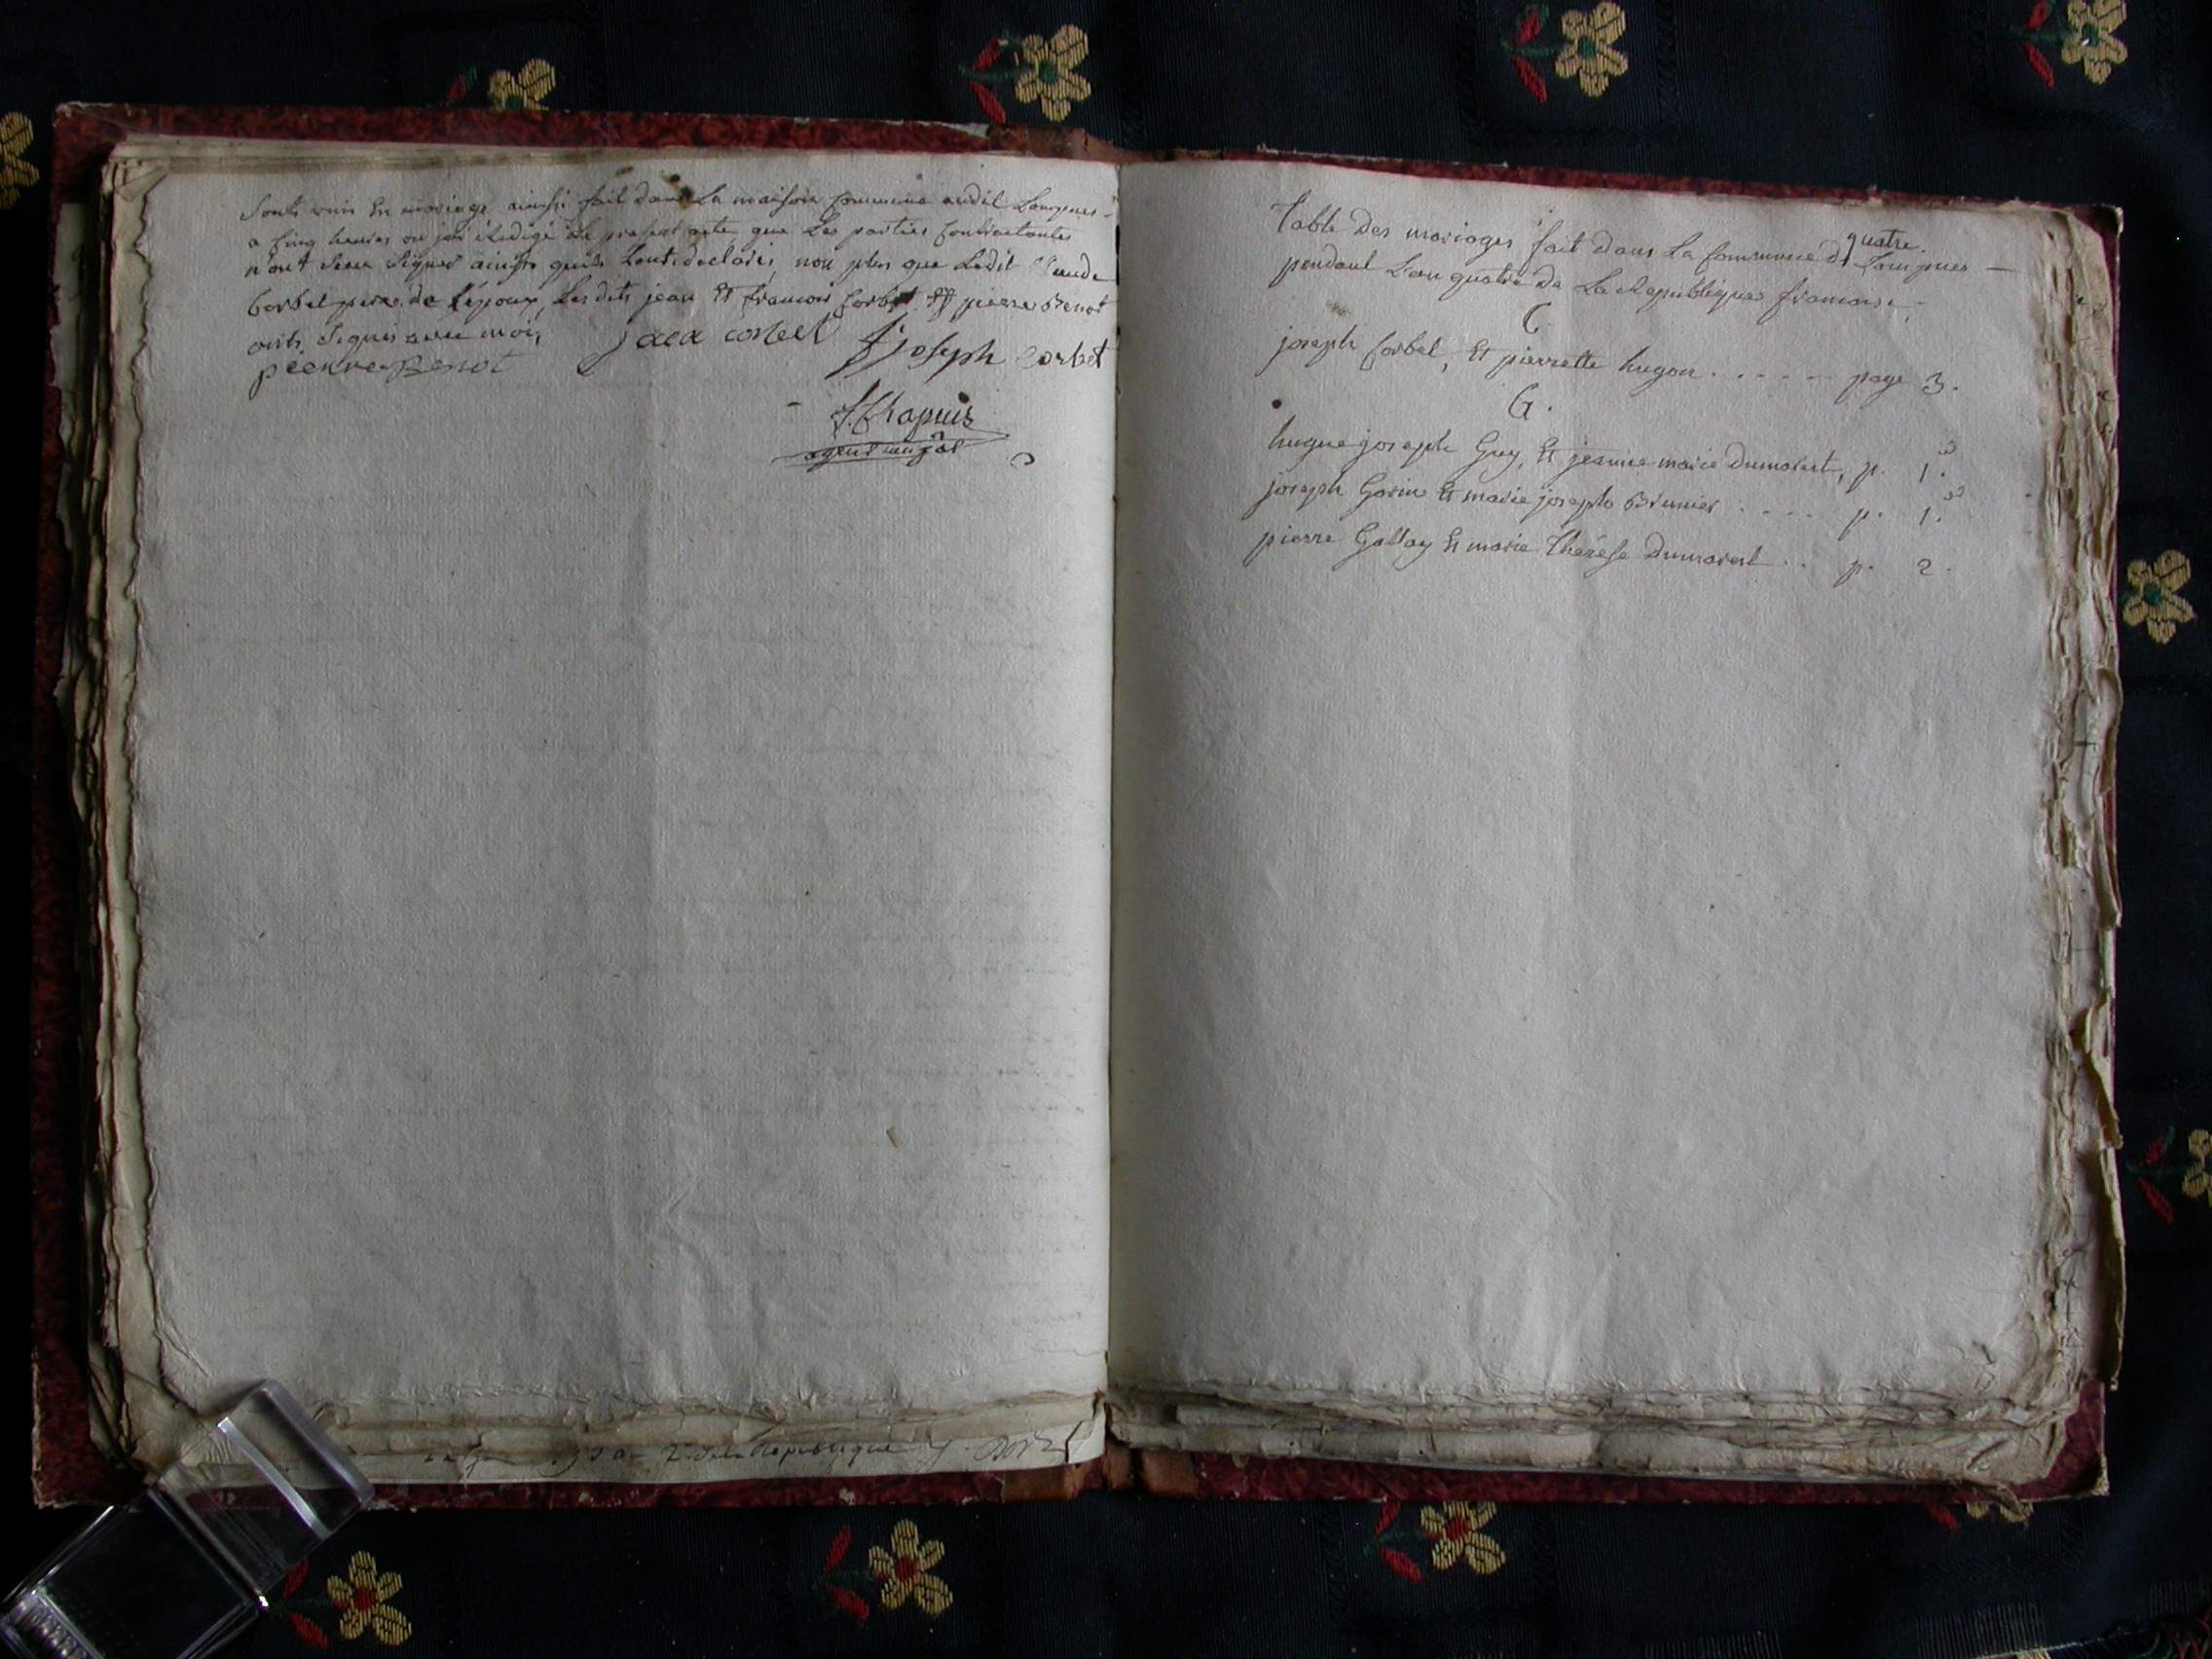 sont unis En mariage ainsi fait dans La maison commune audit Lompnes
a cinq heures ou jai Redigé Le present acte, que Les parties contractantes
n'ont sceu signer ainsi quils Lont declarés, non plus que Ledit Claude
Corbet pere de l'époux, Les dits jean Et francois Corbet Et pierre Benot
onts signés avec moi,
jean corbet
joseph Corbet
pierre Benot
J. Chapuis
agent mupal
an 2 de la Republique
Table Des mariages fait dans La Commune de Lompnes
quatre.
pendant L'an quatre De La Republique francaise.
C.
joseph Corbet, Et pierrette hugon . . . . . page 3.
G.
hugue joseph Guy, Et jeanne marie Dumarest, p. 1.
joseph Gorin Et marie josephe Brunier . . . . p. 1.
pierre Gallay Et marie Therese Dumarest . . p. 2.